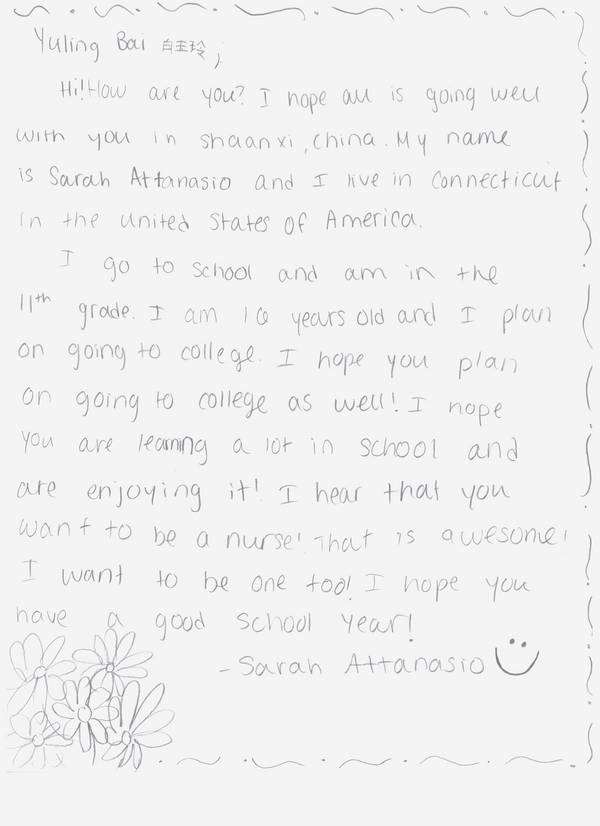 Yuling Bai 白玉玲,
Hi! How are you? I hope all is going well
with you in Shaanxi, China. My name
is Sarah Attanasio and I live in Connecticut
in the United States of America.
I go to school and am in the
11th grade. I am 16 years old and I plan
on going to college. I hope you plan
on going to college as well! I hope
you are learning a lot in school and
are enjoying it! I hear that you
want to be a nurse! That is awesome!
I want to be one too! I hope you
have a good school year!
- Sarah Attanasio